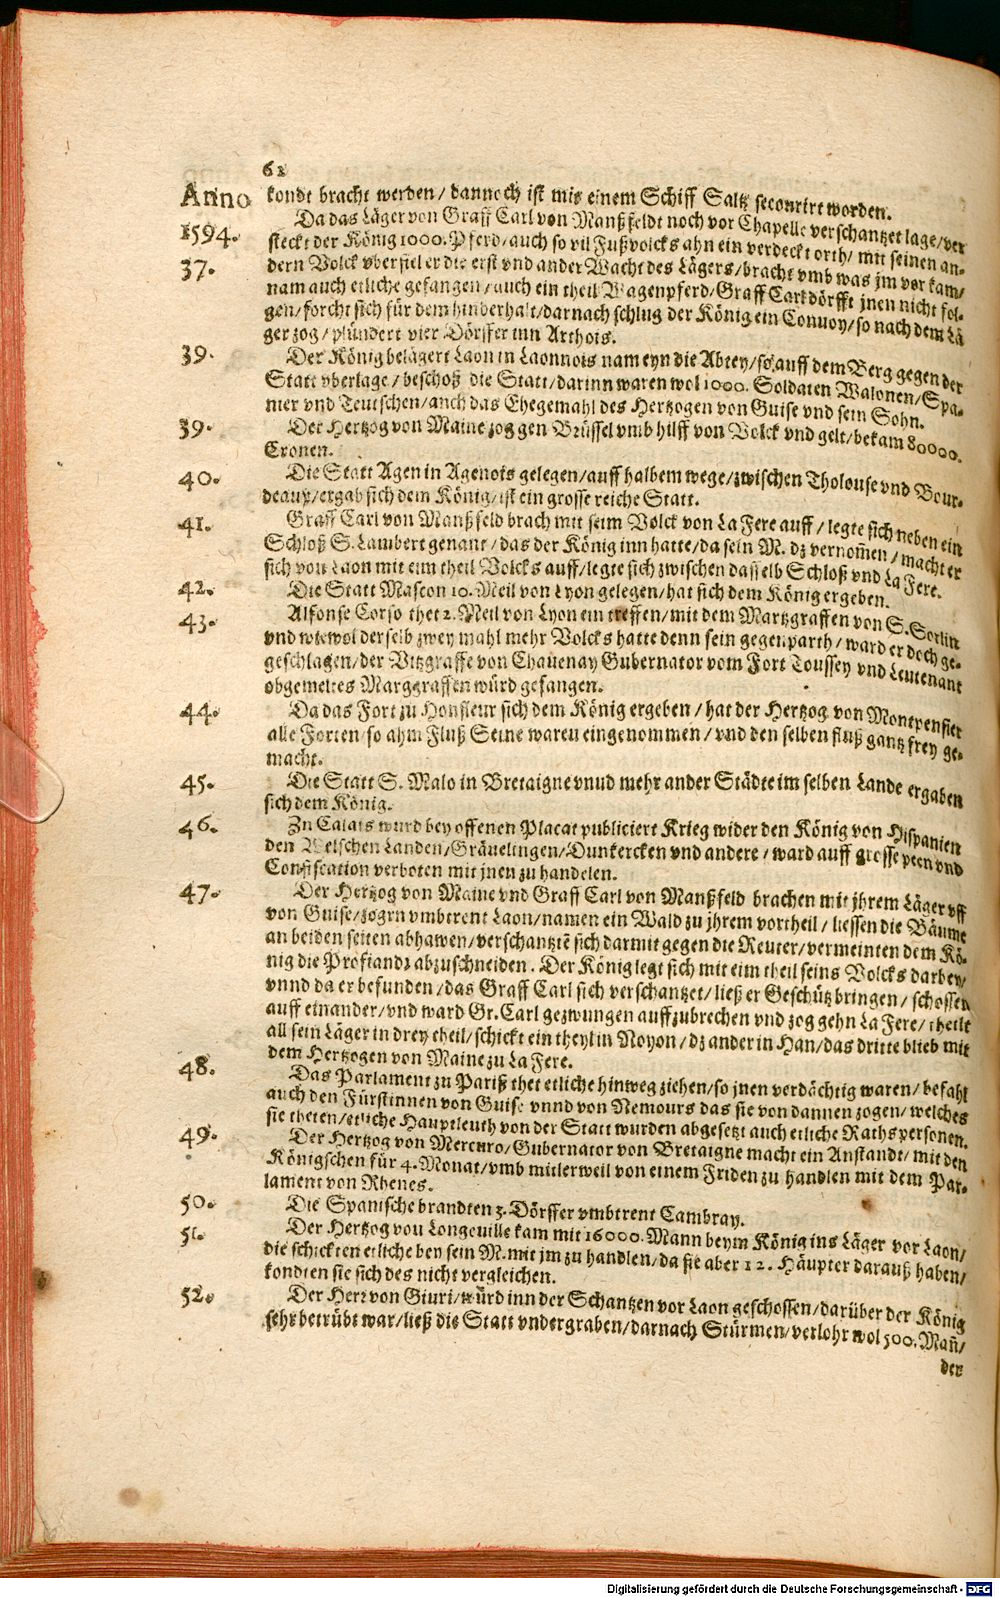 62
Anno kondt bracht werden/ dannoch ist mit einem Schiff Saltz secourirt worden.
1594. Da das Läger von Graff Carl von Manßfeldt noch vor Chapelle verschantzet lage/ ver
steckt der König 1000. Pferd/ auch so vil Fußvolcks ahn ein verdeckt orth/ mit seinen an-
37. dern Volck vberfiel er die erst vnd ander Wacht des Lägers/ bracht vmb was jm vor kam/
nam auch etliche gefangen/ auch ein theil Wagenpferd/ Graff Carl dörfft jnen nicht fol-
gen/ forcht sich für dem hinderhalt/ darnach schlug der König ein Convoy/ so nach dem Lä
ger zog/ plündert vier Dörffer inn Arthois.
39. Der König belägert Laon in Laonnois nam eyn die Abtey/ so auff dem Berg gegen der
Statt vberlage/ beschoß die Statt/ darinn waren wol 1000. Soldaten Walonen/ Spa-
nier vnd Teutschen/ auch das Ehegemahl des Hertzogen von Guise vnd sein Sohn.
39. Der Hertzog von Maine zog gen Brüssel vmb hilff von Volck vnd gelt/ bekam 80000.
Cronen.
40. Die Statt Agen in Agenois gelegen/ auff halbem wege/ zwischen Tholouse vnd Bour-
deaux/ ergab sich dem König/ ist ein grosse reiche Statt.
41. Graff Carl von Manßfeld brach mit seim Volck von La Fere auff/ legte sich neben ein
Schloß S. Lambert genant/ das der König inn hatte/ da sein M. dz vernom̃en/ macht er
sich von Laon mit eim theil Volcks auff/ legte sich zwischen dasselb Schloß vnd La Fere.
42. Die Statt Mascon 10. Meil von Lyon gelegen/ hat sich dem König ergeben.
43. Alfonse Corso thet 2. Meil von Lyon ein treffen/ mit dem Martzgraffen von S. Sorlin
vnd wiewol derselb zwey mahl mehr Volcks hatte denn sein gegenparth/ ward er doch ge-
geschlagen/ der Vitzgraffe von Chauenay Gubernator vom Fort Toussey vnd Leutenant
obgemeltes Marggraffen würd gefangen.
44. Da das Fort zu Honfleur sich dem König ergeben/ hat der Hertzog von Montpensier
alle Forten/ so ahm Fluß Seine waren eingenommen/ vnd den selben fluß gantz frey ge-
macht.
45. Die Statt S. Malo in Bretaigne vnnd mehr ander Städte im selben Lande ergaben
sich dem König.
46. Zu Calais wurd bey offenen Placat publiciert Krieg wider den König von Hispanien
den Welschen Landen/ Grävelingen/ Dunkercken vnd andere/ ward auff grosse peen vnd
Confiscation verboten mit jnen zu handelen.
47. Der Hertzog von Maine vnd Graff Carl von Manßfeld brachen mit jhrem Läger vff
von Guise/ zogen vmbtrent Laon/ namen ein Wald zu jhrem vortheil/ liessen die Bäume
an beiden seiten abhawen/ verschantztẽ sich darmit gegen die Reuter/ vermeinten dem Kö-
nig die Profiandz abzuschneiden. Der König legt sich mit eim theil seins Volcks darbey/
vnnd da er befunden/ das Graff Carl sich verschantzet/ ließ er Geschütz bringen/ schossen
auff einander/ vnd ward Gr. Carl gezwungen auffzubrechen vnd zog gehn La Fere/ theilt
all sein Läger in drey theil/ schickt ein theyl in Noyon/ dz ander in Han/ das dritte blieb mit
dem Hertzogen von Maine zu La Fere.
48. Das Parlament zu Pariß thet etliche hinweg ziehen/ so jnen verdächtig waren/ befahl
auch den Fürstinnen von Guise vnnd von Nemours das sie von dannen zogen/ welches
sie theten/ etliche Hauptleuth von der Statt wurden abgesetzt auch etliche Rathspersonen.
49. Der Hertzog von Mercuro/ Gubernator von Bretaigne macht ein Anstandt/ mit den
Königschen für 4. Monat/ vmb mitlerweil von einem Friden zu handlen mit dem Par-
lament von Rhenes.
50. Die Spanische brandten 3. Dörffer vmbtrent Cambray.
51. Der Hertzog von Longeuille kam mit 16000. Mann beym König ins Läger vor Laon/
die schickten etliche bey sein M. mit jm zu handlen/ da sie aber 12. Häupter darauß haben/
kondten sie sich des nicht vergleichen.
52. Der Herr von Giuri/ würd inn der Schantzen vor Laon geschossen/ darüber der König
sehr betrübt war/ ließ die Statt vndergraben/ darnach Stürmen/ verlohr wol 500. Mañ/
der
Digitalisierung gefördert durch die Deutsche Forschungsgemeinschaft - DFG